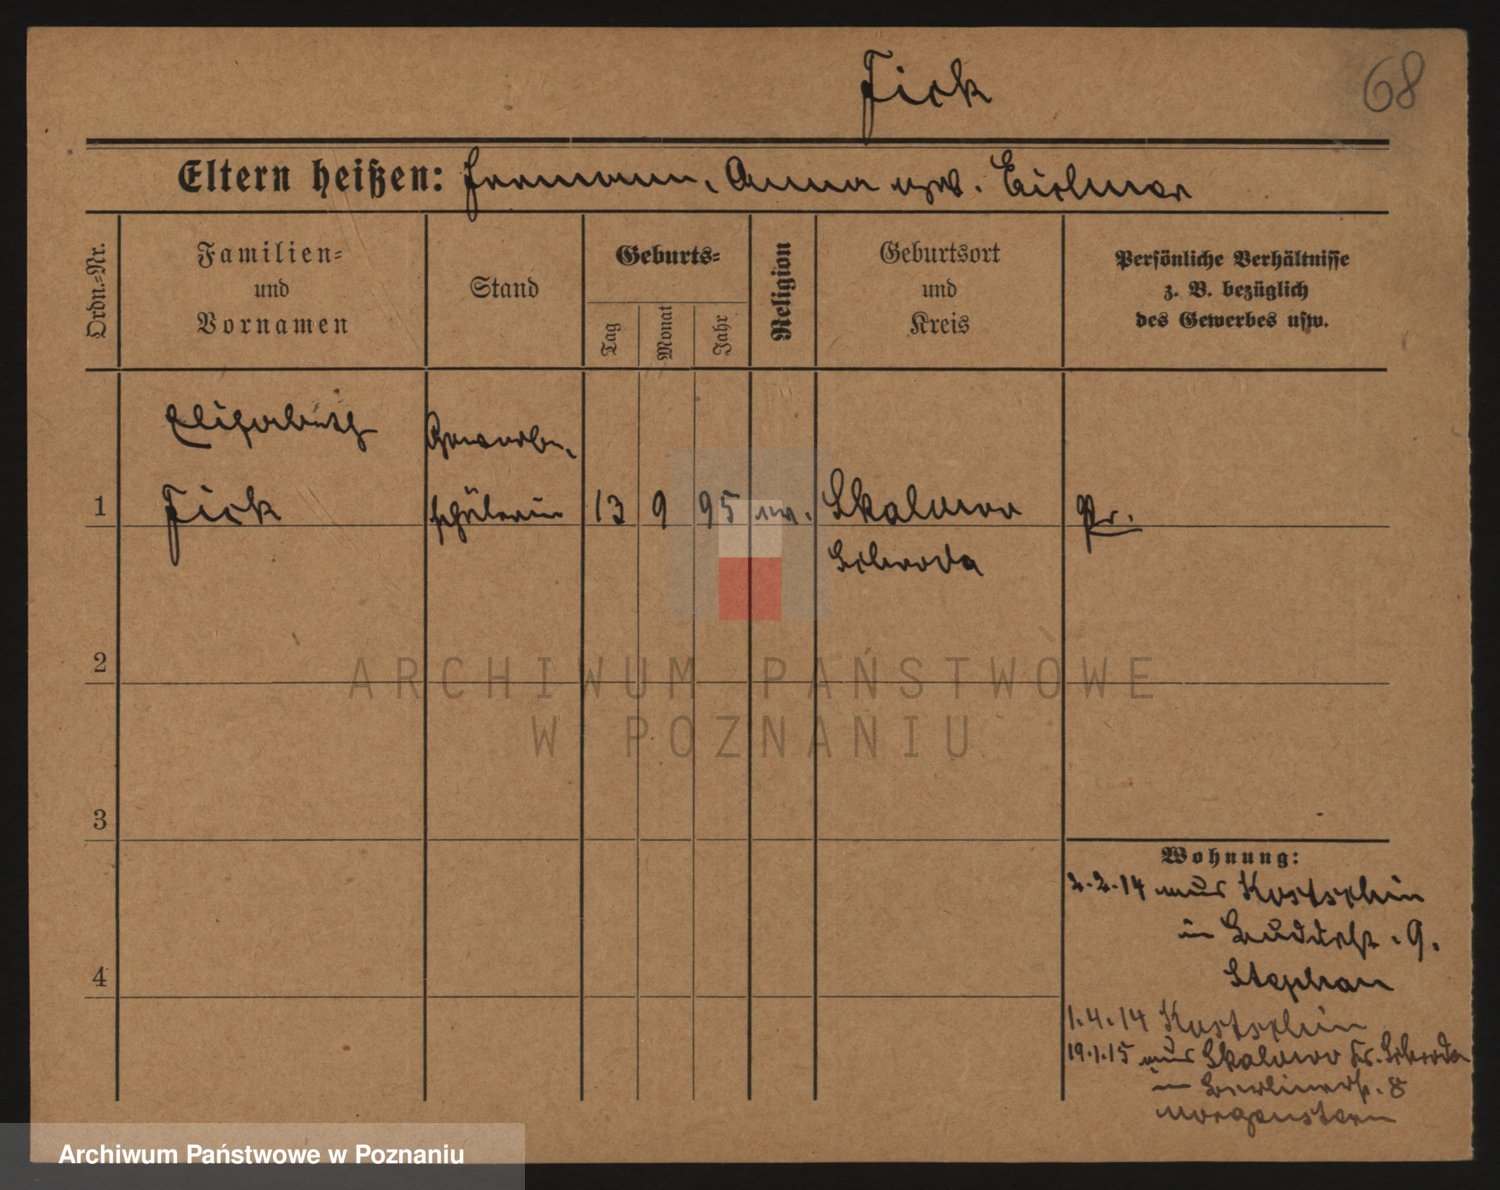 Fick
68
Eltern heißen: Hermann, Anna geb. Eichner
Ordn.-Nr.
Familien-
und
Vornamen
Stand
Geburts-
Tag
Monat
Jahr
Religion
Geburtsort
und
Kreis
Persönliche Verhältnisse
z. B. bezüglich
des Gewerbes usw.
Elisabeth Gewerbe-
1 Fick schülerin 13 9 95 ev. Skalowo Pr.
Schroda
2
ARCHIWUM PAŃSTWOWE
W POZNANIU
3
Wohnung:
2.2.14 aus Kostschin
in Buddestr. 9.
4
Stephan
1.4.14 Kostschin
19.1.15 aus Skalowo Kr. Schroda
in Berlinerstr. 8
Morgenstern
Archiwum Państwowe w Poznaniu